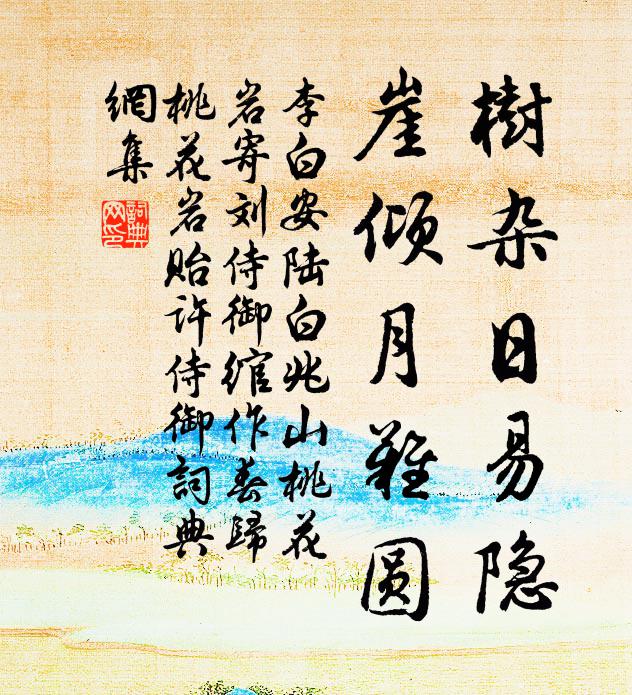 樹杂日易隐
崖倾月難圆
李白安陆白兆山桃花
岩寄刘侍御绾作春歸
桃花岩贻许侍御詞典
網集
詞典
网印